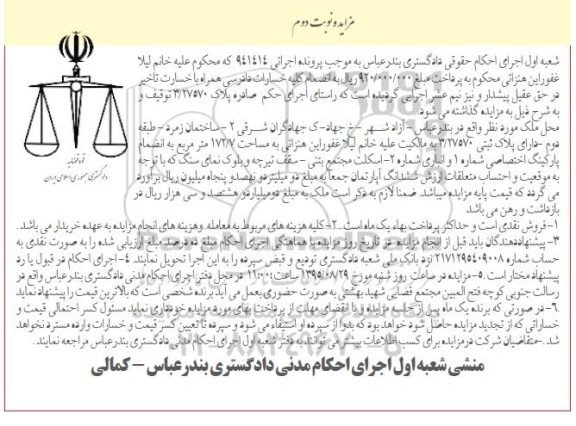 مزایده نوبت دوم
شعبه اول اجرای احکام حقوقی دادگستری بندرعباس به موجب پرونده اجرائی ۹۴۱۴۱۴ که محکوم علیه خانم لیلا
غفوراین هنزائی محکوم به پرداخت مبلغ ۹۲۰/۰۰۰/۰۰۰ ریال به انضمام کلیه خسارات دادرسی همراه با خسارت تأخیر
در حق عقیل پیشدار و نیز نیم عشر اجرایی گردیده است که راستای اجرای حکم صادره پلاک ۳/۲۷۵۷۰ توقیف و
به شرح ذیل به مزایده گذاشته می شود.
محل ملک مورد نظر واقع در بندرعباس - آزاد شهر - خ جهاد- ک جهادگران شرقی ۲ - ساختمان زمرد - طبقه
دوم - دارای پلاک ثبتی ۳/۲۷۵۷۰ به مالکیت علیه خانم لیلا غفوراین هنزائی به مساحت ۱۷۲/۷ متر مربع به انضمام
پارکینگ اختصاصی شماره ۱ و انباری شماره ۲- اسکلت مجتمع بتنی - سقف تیرچه وبلوک نمای سنگ که با توجه
به موقعیت و احتساب متعلقات ارزش ششدانگ آپارتمان جمعا به مبلغ دو میلیارد و نهصد و پنجاه میلیون ریال برآورد
می گردد که قیمت پایه مزایده میباشد. ضمنا لازم به ذکر است ملک به مبلغ دو میلیارد و هشتصد و سی هزار ریال در
بازداشت و رهن می باشد
۱- فروش نقدی است و حداکثر پرداخت بهاء یک ماه است. ۲- کلیه هزینه های مربوط به معامله وهزینه های انجام مزایده به عهده خریدار می باشد.
۳- پیشنهاددهندگان باید قبل از انجام مزایده در تاریخ روز مزایده با هماهنگی اجرای احکام مبلغ ده درصد مبلغ ارزیابی شده را به صورت نقدی به
حساب شماره ۲۱۷۱۲۹۵۴۰۹۰۰۸ نزد بانک ملی شعبه دادگستری تودیع و فیض سپرده را به این اجرا تحویل نمایند. ۴- اجرای احکام در قبول یا رد
پیشنهاد مختار است. ۵- مزایده در ساعت روز شنبه مورخ ۱۳۹۵/۰۸/۲۹ ساعت: ۱۱:۰۰ در محل دفتر اجرای احکام مدنی دادگستری بندرعباس واقع در
رسالت جنوبی کوچه فتح المبین مجتمع قضائی شهید بهشتی به صورت حضوری بعمل می آید برنده شخصی است که بالاترین قیمت را پیشنهاد نماید
۶- در صورتی که برنده یک ماه پس از جلسه مزایده و با انقضای مهلت از پرداخت بهای مورد مزایده خودداری نماید مسئول کسر احتمالی قیمت و
خساراتی که از تجدید مزایده حاصل شود خواهد بود که بدوا از سپرده او استیفاء می شود و سپرده تا تعیین کسر قیمت و خسارات وارده مسترد نخواهد
شد. -متقاضیان شرکت در مزایده برای کسب اطلاعات بیشتر می توانند به دفتر شعبه اول اجرای احکام مدنی دادگستری بندرعباس مراجعه نمایند.
منشی شعبه اول اجرای احکام مدنی دادگستری بندرعباس - کمالی
قوه قضائیه
دادگستری جمهوری اسلامی ایران